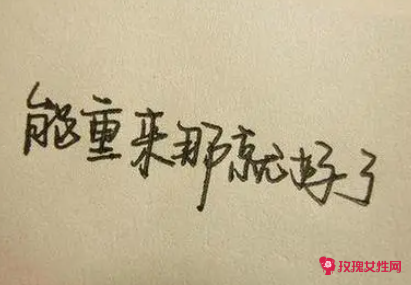 能重来那就好了
玫瑰女性网